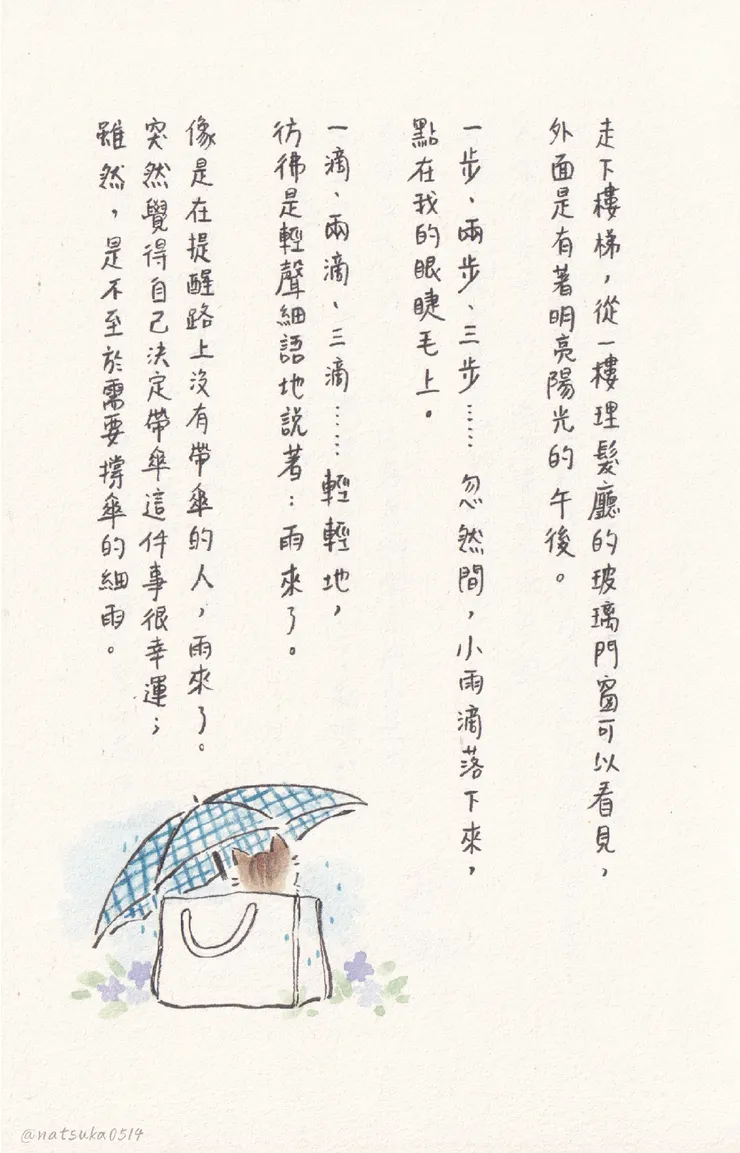 走下樓梯，從一樓理髮廳的玻璃門窗可以看見，
外面是有著明亮陽光的午後。
一步、兩步、三步……忽然間，小雨滴落下來，
點在我的眼睫毛上。
一滴、兩滴、三滴……輕輕地，
彷彿是輕聲細語地說著：雨來了。
像是在提醒路上沒有帶傘的人，雨來了。
突然覺得自己決定帶傘這件事很幸運；
雖然，是不至於需要撐傘的細雨。
@natsuka0514